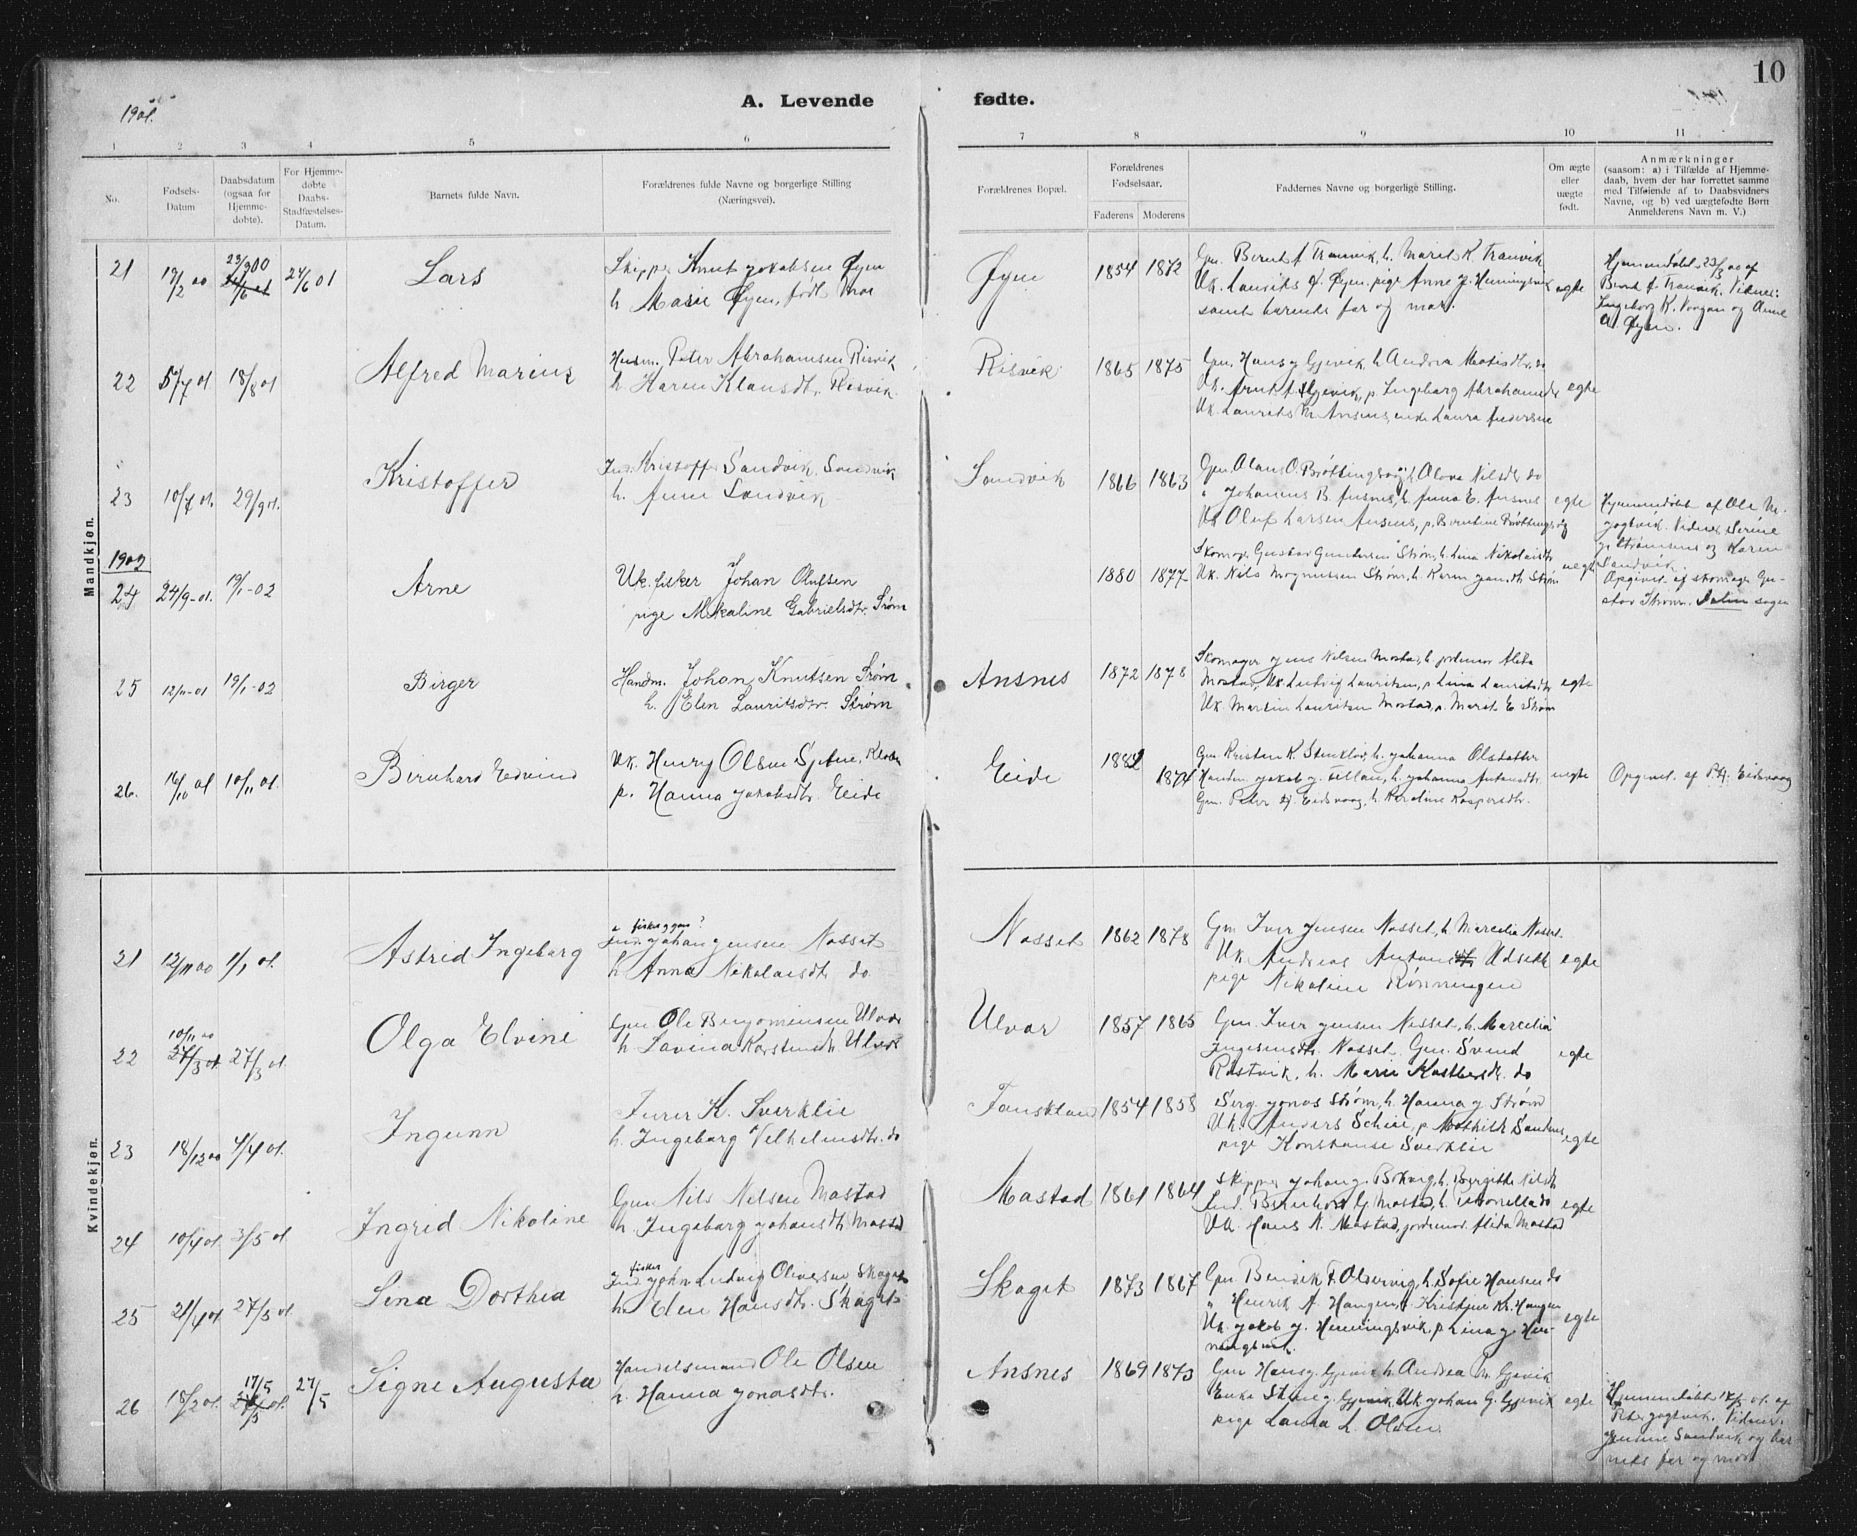 10
1901.
A. Levende fødte.
1 2 3 4 5 6 7 8 9 10 11
No.
Fødsels-
Datum
Daabsdatum
(ogsaa for
Hjemme-
døbte).
For Hjemme-
døbte
Daabs-
Stadfæstelses-
Datum.
Barnets fulde Navn.
Forældrenes fulde Navne og borgerlige Stilling
(Næringsvei).
Forældrenes Bopæl.
Forældrenes
Fødselsaar.
Faderens Moderens
Faddernes Navne og borgerlige Stilling.
Om ægte
eller
uægte
født.
Anmærkninger
(saasom: a) i Tilfælde af Hjemme-
daab, hvem der har forrettet samme
med Tilføiende af to Daabsvidners
Navne, og b) ved uægtefødte Børn
Anmelderens Navn m. V.)
Mandkjøn.
21 17/2 00 23/3 00 24/6 01 Lars
Skipper Knut Jakobsen Øyen
h. Marie Øyen, født Moe
Øyen 1854 1872
Gm. Bernt J. Tranvik, h. Marit K. Tranvik
Uk. Laurits Øyen, pige Anne J. Henningsvik
samt barnets far og mor.
egte
Hjemmedøbt 23/3 00 af
Bernt J. Tranvik. Vidner:
Ingeborg K. Vongen og Anne
A. Øyen.
22 5/7 01 18/8 01 Alfred Marius
Husm. Peter Abrahamsen Risvik
h. Karen Klausdtr. Risvik
Risvik 1865 1875
Gm. Hans J. Gjevik, h. Andrea Matisdtr. do
Uk. Arnt J. Gjevik, p. Ingeborg Abrahamsdtr
Uk. Laurits M. Ansnes, enke Laura Andersen
egte
23 10/7 01. 29/9 01. Kristoffer
Ind. Kristoffer Sandvik, Sandvik
h. Anne Sandvik
Sandvik 1866 1863
Gm. Olaus O. Brøttingsvåg, h. Olava Nilsdtr do
" Johannes B. Ansnes, h. Anna E. Ansnes
Uk. Oluf Larsen Ansnes, p. Berntine Brøttingsvåg
egte
Hjemmedøbt af Ole M.
Jøgtvik. Vidner Serine
J. Strømsnes og Karen
Sandvik.
1902
24 24/9-01. 19/1-02 Arne
Uk. fisker Johan Olufsen
pige Mikaline Gabrielsdtr. Strøm
1880 1877
Skomager Gustav Gundersen Strøm, h. Lina Nikolaisdtr
Uk. Nils Magnussen Strøm, h. Karen Jansdtr Strøm
uegte
Opgivet af skomager Gu-
stav Strøm.
25 12/11-01 19/1-02 Birger
Handm. Johan Knutsen Strøm
h. Elen Lauritsdtr. Strøm
Ansnes 1872 1878
Skomager Jens Nilsen Mostad, h. jordmor Alida
Mostad, Uk. Ludvig Lauritsen, p. Lina Lauritsdtr
Uk. Martin Lauritsen Mostad, p. Marit E. Strøm
egte
26. 16/10 01 10/11 01. Bernhard Edvind
Uk. Henry Olsen
p. Hanna Jakobsdtr. Eide
Eide 1882 1874
Gm. Kristen K. h. Johanna Olsdatter
Handm. Jakob J. h. Johanna Antonsdtr.
Gm. Peter Eidsvaag, h. Karoline Kaspersdtr.
uegte
Opgivet af P. Eidsvaag
Kvindekjøn.
21 12/11 00 1/1 01. Astrid Ingeborg
Ind. Johan Jensen Nasset
h. Anna Nikolaisdtr do
Nasset 1862 1878
Gm Iver Jensen Nasset, h. Marcelia Nasset.
Uk. Andreas Antonsen Udsikt
pige Nikoline Rønningen
egte
22 10/11 00 27/3 01. Olga Elvine
Gm Ole Benjaminsen Ulvar
h. Lavina Karstensdtr Ulvar
Ulvar 1857 1865
Gm. Iver Jensen Nasset, h. Marcelia
Nasset. Gm. Svend
Rostvik, h. Marie Kastbersdtr. do
egte
23 18/12 00 4/4 01. Ingunn
Furer K. Sverklie
h. Ingeborg Vilhelmsdtr. do
1854 1858
Serg. Jonas Strøm, h. Hanna J. Strøm
Uk. Anders Schei, p. Mathilde
pige Konstanse Sverklie
egte
24 10/4 01. 3/5 01 Ingrid Nikoline
Gm Nils Nilsen Mastad
h. Ingeborg Johansdtr. Mastad
Mastad 1861 1864
Skipper Johan J. h. Bergitte Nilsdtr
Ind. Bernhard G. Mastad, h. Petronella do
Uk. Hans N. Mastad, jordmor Alida Mastad
egte
25 21/4 01. 27/5 01 Lina Dorthea
fisker
Ind John Ludvig Oliversen Skaget
h. Elen Hansdtr. Skaget
Skaget 1873 1867
Gm Bendik F. Oldervig, h. Sofie Hansen do
" Henrik A. Haugen, h. Kristine Kr. Haugen
Uk. Jakob J. Henningsvik, p. Lina J. Hen-
ningsvik.
egte
26 18/2 01. 17/5 27/5 Signe Augusta
Handelsmand Ole Olsen
h. Hanna Jonasdtr.
Ansnes 1869 1873
Gm Hans J. Gjevik h. Andrea M. Gjevik
Enke Stine J. Gjevik, Uk Johan G. Gjevik
pige Laura L. Olsen
egte
Hjemmedøbt 17/5 01. af
Peter Jøgtvik. Vidner:
Jensine Sandvik og bar
nets far og mor